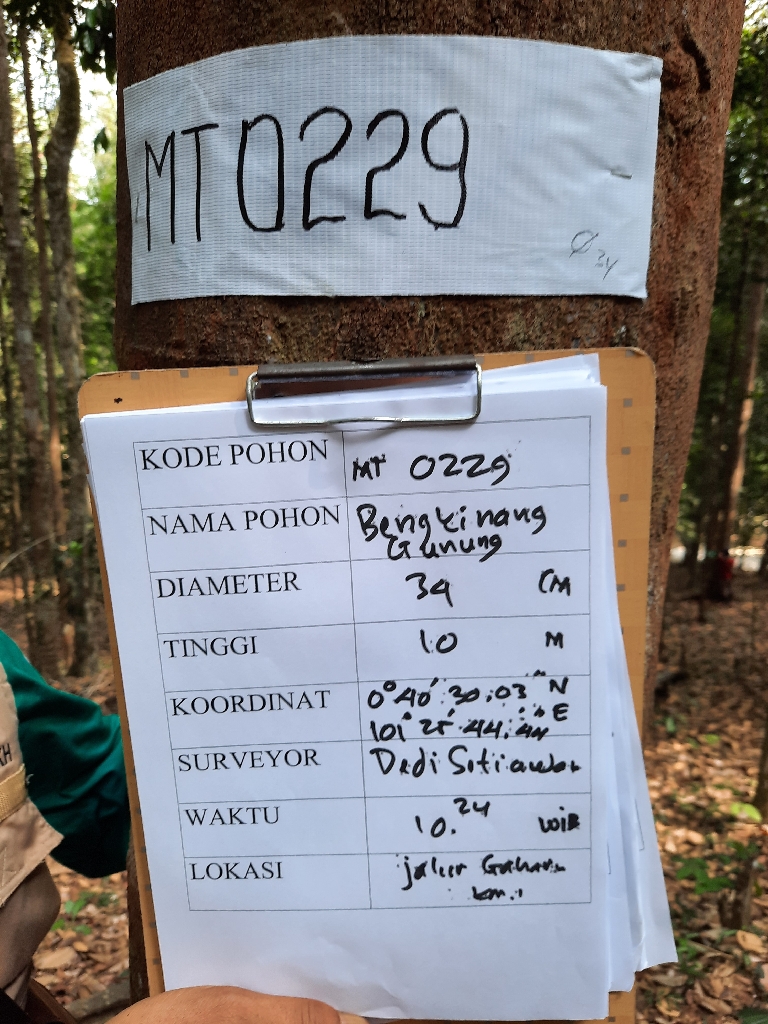 MT0229
Ø 34
KODE POHON MT 0229
NAMA POHON Bengkinang
Gunung
DIAMETER 34 CM
TINGGI 10 M
KOORDINAT 0° 40' 30.03" N
101° 25' 44.44" E
SURVEYOR Dedi Setiawan
WAKTU 10.24 WIB
LOKASI jalur Gaharu
km.1